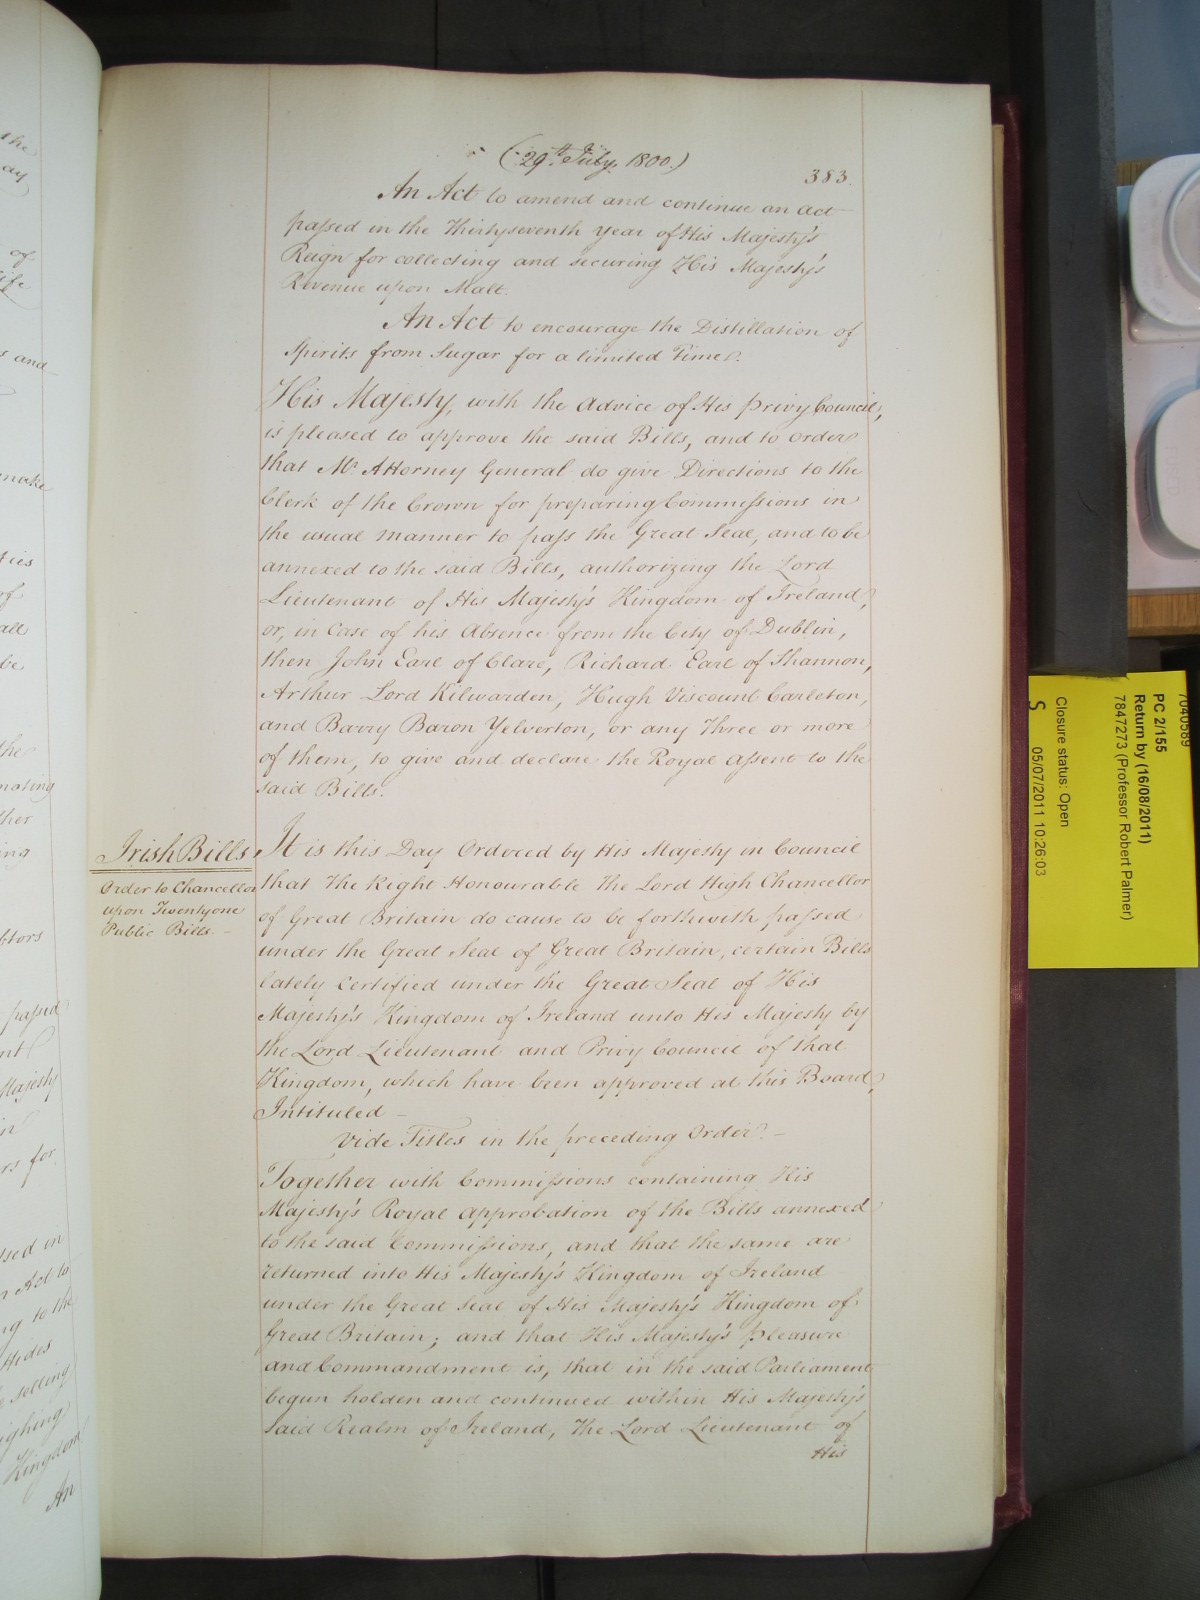 (29th July, 1800.)
383.
An Act to amend and continue an act
passed in the Thirtyseventh year of His Majesty's
Reign for collecting and securing His Majesty's
Revenue upon Malt.
An Act to encourage the Distillation of
Spirits from Sugar for a limited Time.
His Majesty, with the Advice of His Privy Council,
is pleased to approve the said Bills, and to order
that Mr. Attorney General do give Directions to the
Clerk of the Crown for preparing Commissions in
the usual manner to pass the Great Seal, and to be
annexed to the said Bills, authorizing the Lord
Lieutenant of His Majesty's Kingdom of Ireland,
or, in Case of his Absence from the City of Dublin,
then John Earl of Clare, Richard Earl of Shannon,
Arthur Lord Kilwarden, Hugh Viscount Carleton,
and Barry Baron Yelverton, or any Three or more
of them, to give and declare the Royal Assent to the
said Bills.
Irish Bills,
Order to Chancellor
upon Twentyone
Public Bills. -
It is this Day Ordered by His Majesty in Council
that The Right Honourable The Lord High Chancellor
of Great Britain do cause to be forthwith passed
under the Great Seal of Great Britain, certain Bills
lately Certified under the Great Seal of His
Majesty's Kingdom of Ireland unto His Majesty by
the Lord Lieutenant and Privy Council of that
Kingdom, which have been approved at this Board,
Intituled -
Vide Titles in the preceding Order. -
Together with Commissions containing His
Majesty's Royal Approbation of the Bills annexed
to the said Commissions, and that the same are
returned into His Majesty's Kingdom of Ireland
under the Great Seal of His Majesty's Kingdom of
Great Britain; and that His Majesty's pleasure
and Commandment is, that in the said Parliament
begun holden and continued within His Majesty's
said Realm of Ireland, The Lord Lieutenant of
His
the
ay
of
life
s and
make
ties
of
all
be
the
nating
ther
ing
btors
passed
nt
Majesty
in
rs for
sed in
n Act to
ng to the
Hides
selling
ighing
Kingdom
An
7040589
PC 2/155
Return by (16/08/2011)
7847273 (Professor Robert Palmer)
Closure status: Open
S 05/07/2011 10:26:03